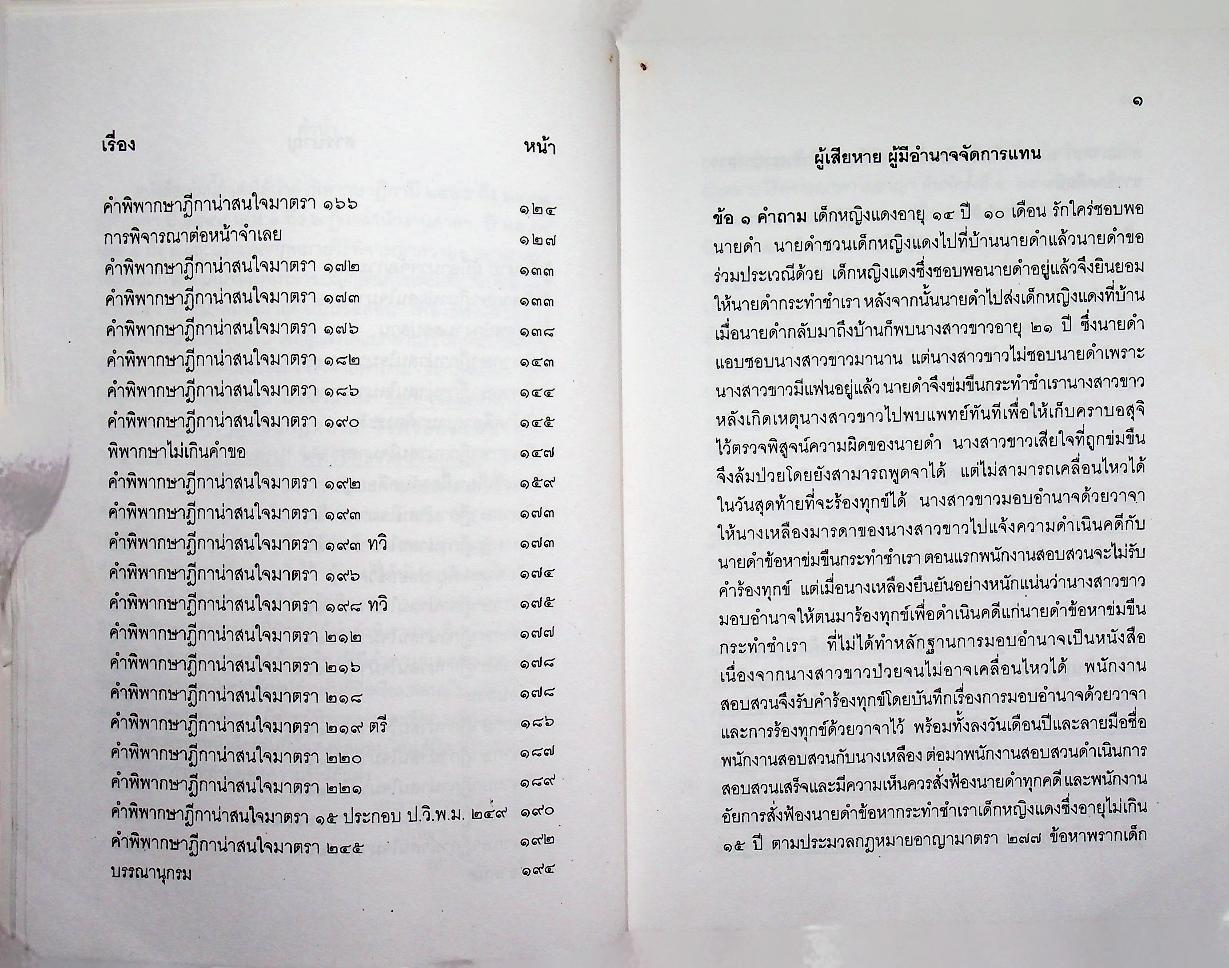 เรื่อง หน้า
คำพิพากษาฎีกาน่าสนใจมาตรา ๑๖๖ ๑๒๔
การพิจารณาต่อหน้าจำเลย ๑๒๗
คำพิพากษาฎีกาน่าสนใจมาตรา ๑๗๒ ๑๓๓
คำพิพากษาฎีกาน่าสนใจมาตรา ๑๗๓ ๑๓๓
คำพิพากษาฎีกาน่าสนใจมาตรา ๑๗๖ ๑๓๘
คำพิพากษาฎีกาน่าสนใจมาตรา ๑๘๒ ๑๔๓
คำพิพากษาฎีกาน่าสนใจมาตรา ๑๘๖ ๑๔๔
คำพิพากษาฎีกาน่าสนใจมาตรา ๑๙๐ ๑๔๕
พิพากษาไม่เกินคำขอ ๑๔๗
คำพิพากษาฎีกาน่าสนใจมาตรา ๑๙๒ ๑๕๙
คำพิพากษาฎีกาน่าสนใจมาตรา ๑๙๓ ๑๗๓
คำพิพากษาฎีกาน่าสนใจมาตรา ๑๙๓ ทวิ ๑๗๓
คำพิพากษาฎีกาน่าสนใจมาตรา ๑๙๖ ๑๗๔
คำพิพากษาฎีกาน่าสนใจมาตรา ๑๙๘ ทวิ ๑๗๕
คำพิพากษาฎีกาน่าสนใจมาตรา ๒๑๒ ๑๗๗
คำพิพากษาฎีกาน่าสนใจมาตรา ๒๑๖ ๑๗๘
คำพิพากษาฎีกาน่าสนใจมาตรา ๒๑๘ ๑๗๘
คำพิพากษาฎีกาน่าสนใจมาตรา ๒๑๙ ตรี ๑๘๖
คำพิพากษาฎีกาน่าสนใจมาตรา ๒๒๐ ๑๘๗
คำพิพากษาฎีกาน่าสนใจมาตรา ๒๒๑ ๑๘๙
คำพิพากษาฎีกาน่าสนใจมาตรา ๑๕ ประกอบ ป.วิ.พ.ม. ๒๔๙ ๑๙๐
คำพิพากษาฎีกาน่าสนใจมาตรา ๒๔๕ ๑๙๒
บรรณานุกรม ๑๙๔
๑
ผู้เสียหาย ผู้มีอำนาจจัดการแทน
ข้อ ๑ คำถาม เด็กหญิงแดงอายุ ๑๔ ปี ๑๐ เดือน รักใคร่ชอบพอ
นายดำ นายดำชวนเด็กหญิงแดงไปที่บ้านนายดำแล้วนายดำขอ
ร่วมประเวณีด้วย เด็กหญิงแดงซึ่งชอบพอนายดำอยู่แล้วจึงยินยอม
ให้นายดำกระทำชำเรา หลังจากนั้นนายดำไปส่งเด็กหญิงแดงที่บ้าน
เมื่อนายดำกลับมาถึงบ้านก็พบนางสาวขาวอายุ ๒๑ ปี ซึ่งนายดำ
แอบชอบนางสาวขาวมานาน แต่นางสาวขาวไม่ชอบนายดำเพราะ
นางสาวขาวมีแฟนอยู่แล้ว นายดำจึงข่มขืนกระทำชำเรานางสาวขาว
หลังเกิดเหตุนางสาวขาวไปพบแพทย์ทันทีเพื่อให้เก็บคราบอสุจิ
ไว้ตรวจพิสูจน์ความผิดของนายดำ นางสาวขาวเสียใจที่ถูกข่มขืน
จึงล้มป่วยโดยยังสามารถพูดจาได้ แต่ไม่สามารถเคลื่อนไหวได้
ในวันสุดท้ายที่จะร้องทุกข์ได้ นางสาวขาวมอบอำนาจด้วยวาจา
ให้นางเหลืองมารดาของนางสาวขาวไปแจ้งความดำเนินคดีกับ
นายดำข้อหาข่มขืนกระทำชำเรา ตอนแรกพนักงานสอบสวนจะไม่รับ
คำร้องทุกข์ แต่เมื่อนางเหลืองยืนยันอย่างหนักแน่นว่านางสาวขาว
มอบอำนาจให้ตนมาร้องทุกข์เพื่อดำเนินคดีแก่นายดำข้อหาข่มขืน
กระทำชำเรา ที่ไม่ได้ทำหลักฐานการมอบอำนาจเป็นหนังสือ
เนื่องจากนางสาวขาวป่วยจนไม่อาจเคลื่อนไหวได้ พนักงาน
สอบสวนจึงรับคำร้องทุกข์โดยบันทึกเรื่องการมอบอำนาจด้วยวาจา
และการร้องทุกข์ด้วยวาจาไว้ พร้อมทั้งลงวันเดือนปีและลายมือชื่อ
พนักงานสอบสวนกับนางเหลือง ต่อมาพนักงานสอบสวนดำเนินการ
สอบสวนเสร็จและมีความเห็นควรสั่งฟ้องนายดำทุกคดี และพนักงาน
อัยการสั่งฟ้องนายดำข้อหากระทำชำเราเด็กหญิงแดงซึ่งอายุไม่เกิน
๑๕ ปี ตามประมวลกฎหมายอาญามาตรา ๒๗๗ ข้อหาพรากเด็ก